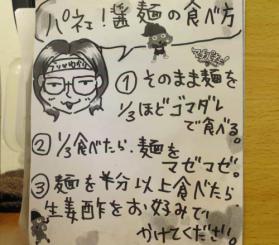 パネェ!醤麺の食べ方
① そのまま麺を
1/3ほどゴマダレ
で食べる。
② 1/3食べたら、麺を
マゼマゼ。
③ 麺を半分以上食べたら
生姜酢をお好みで
かけてください